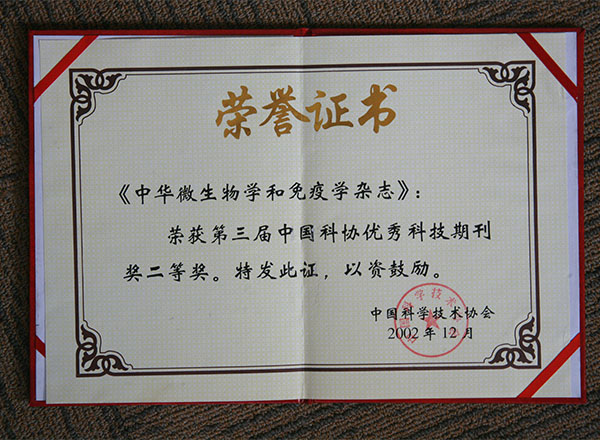 荣誉证书
《中华微生物学和免疫学杂志》：
荣获第三届中国科协优秀科技期刊
奖二等奖。特发此证，以资鼓励。
中国科学技术协会
2002年12月